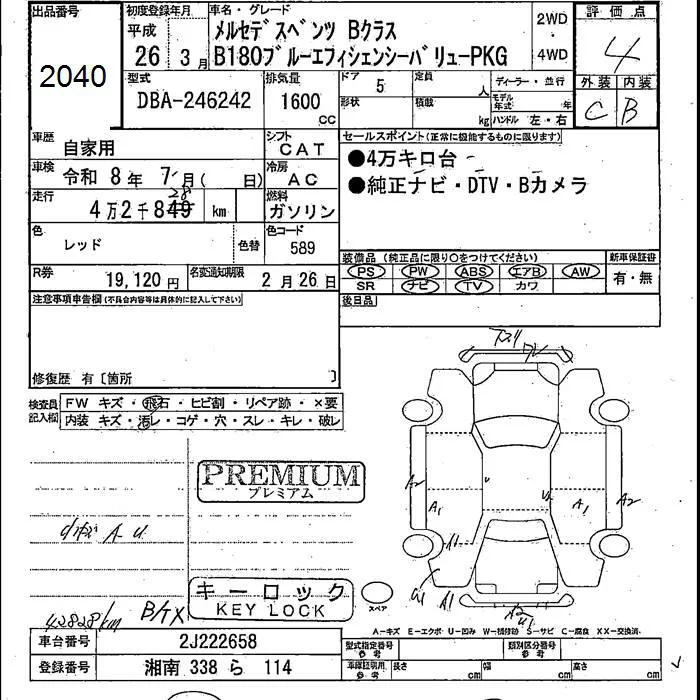 出品番号 初度登録年月 車名・グレード 評価点
2040 平成 26 3月 メルセデスベンツ Bクラス 2WD・4WD 4
B180ブルーエフィシェンシーバリューPKG
型式 排気量 ドア 5 定員 人 ディーラー・並行 外装 内装
DBA-246242 1600 cc 形状 積載 kg モデル年式 年 ハンドル 左・右 C B
車歴 自家用 シフト CAT セールスポイント(正常に機能するものに限ります)
車検 令和 8年 7月( 日) 冷房 AC ●4万キロ台
走行 4万2千849 28 km 燃料 ガソリン ●純正ナビ・DTV・Bカメラ
色 レッド 色替 色コード 589
装備品(純正品に限り○をつけてください) 新車保証書
R券 19,120円 名変通知期限 2月26日 PS PW ABS エアB AW 有・無
SR ナビ TV カワ
注意事項申告欄(不具合内容等は具体的に記入して下さい) 後日品
修復歴 有〔箇所 〕
検査員記入欄 FW キズ・飛石・ヒビ割・リペア跡・×要
内装 キズ・汚レ・コゲ・穴・スレ・キレ・破レ
PREMIUM
プレミアム
A2 A1 A1 A2
A1
A-U
U1 A1
キーロック
KEY LOCK
スペア
42828km
A-キズ E-エクボ U-凹み W-補修跡 S-サビ C-腐食 XX-交換済
車台番号 2J222658 型式指定番号 参考 類別区分番号 参考
登録番号 湘南 338 ら 114 車庫証明用 参考 長さ cm 幅 cm 高さ cm